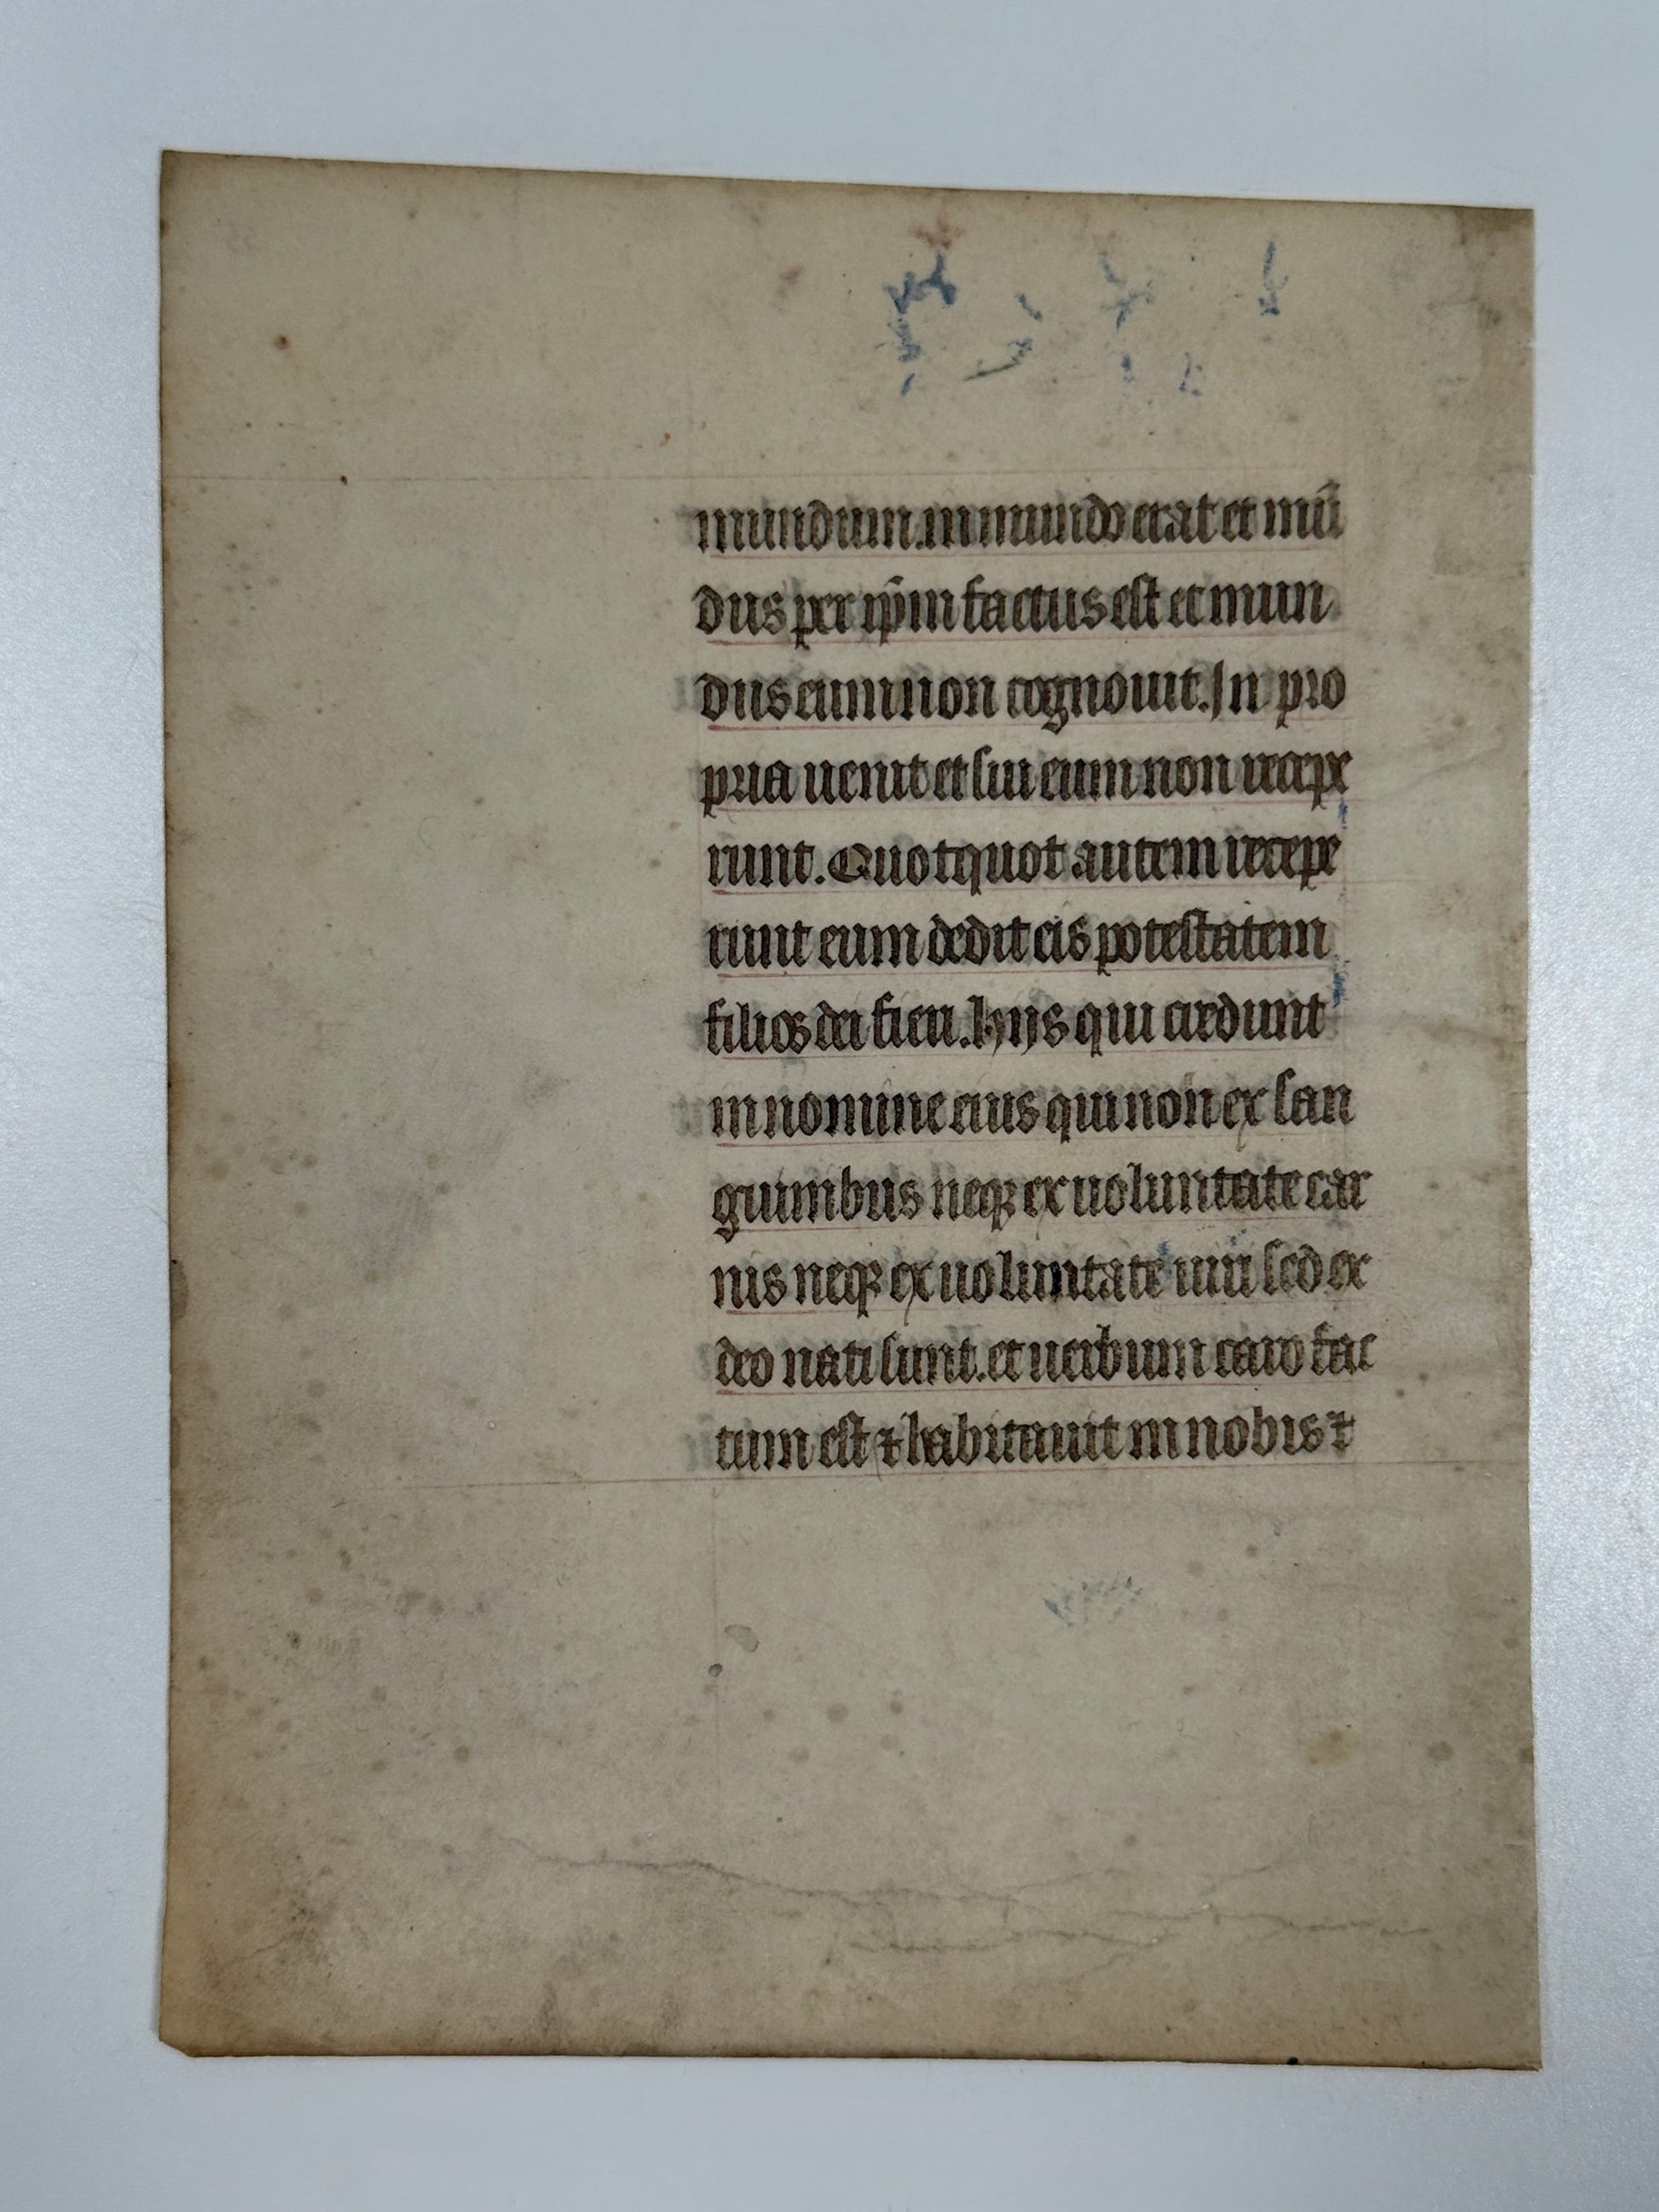 mundum. in mundo erat et mū
dus per ip̄m factus est et mun
dus eum non cognouit. In pro
pria uenit et sui eum non recepe
runt. Quotquot autem recepe
runt eum dedit eis potestatem
filios dei fieri. hijs qui credunt
in nomine eius qui non ex san
guinibus neqꝫ ex uoluntate car
nis neqꝫ ex uoluntate uiri sed ex
deo nati sunt. et uerbum caro fac
tum est ⁊ habitauit in nobis ⁊